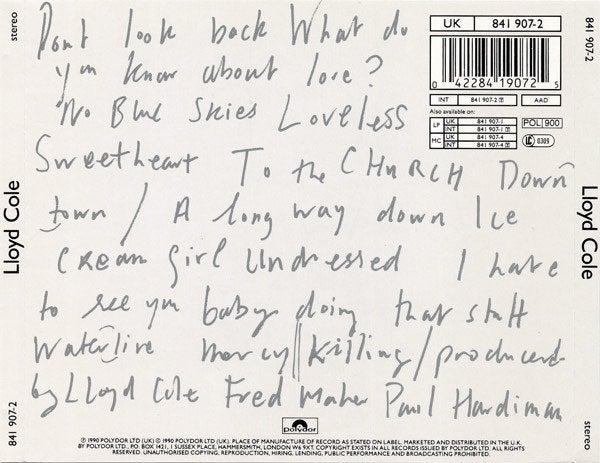 stereo
Lloyd Cole
841 907-2
Don't look back What do
you know about love?
No Blue Skies Loveless
Sweetheart To the CHURCH Down
town / A long way down Ice
Cream Girl Undressed I hate
to see you baby doing that stuff
Waterline Mercy Killing / produced
by Lloyd Cole Fred Maher Paul Hardiman
UK 841 907-2
0 42284 19072 5
INT 841 907-2 AAD
Also available on:
LP UK 841 907-1
INT 841 907-1
MC UK 841 907-4
INT 841 907-4
POL 900
LC 0309
841 907-2
Lloyd Cole
stereo
polydor
℗ 1990 POLYDOR LTD (UK) © 1990 POLYDOR LTD (UK). PLACE OF MANUFACTURE OF RECORD AS STATED ON LABEL. MARKETED AND DISTRIBUTED IN THE U.K.
BY POLYDOR LTD., P.O. BOX 1421, 1 SUSSEX PLACE, HAMMERSMITH, LONDON W6 9XT. COPYRIGHT EXISTS IN ALL RECORDS ISSUED BY POLYDOR LTD.
UNAUTHORISED COPYING, REPRODUCTION, HIRING, LENDING, PUBLIC PERFORMANCE AND BROADCASTING PROHIBITED.